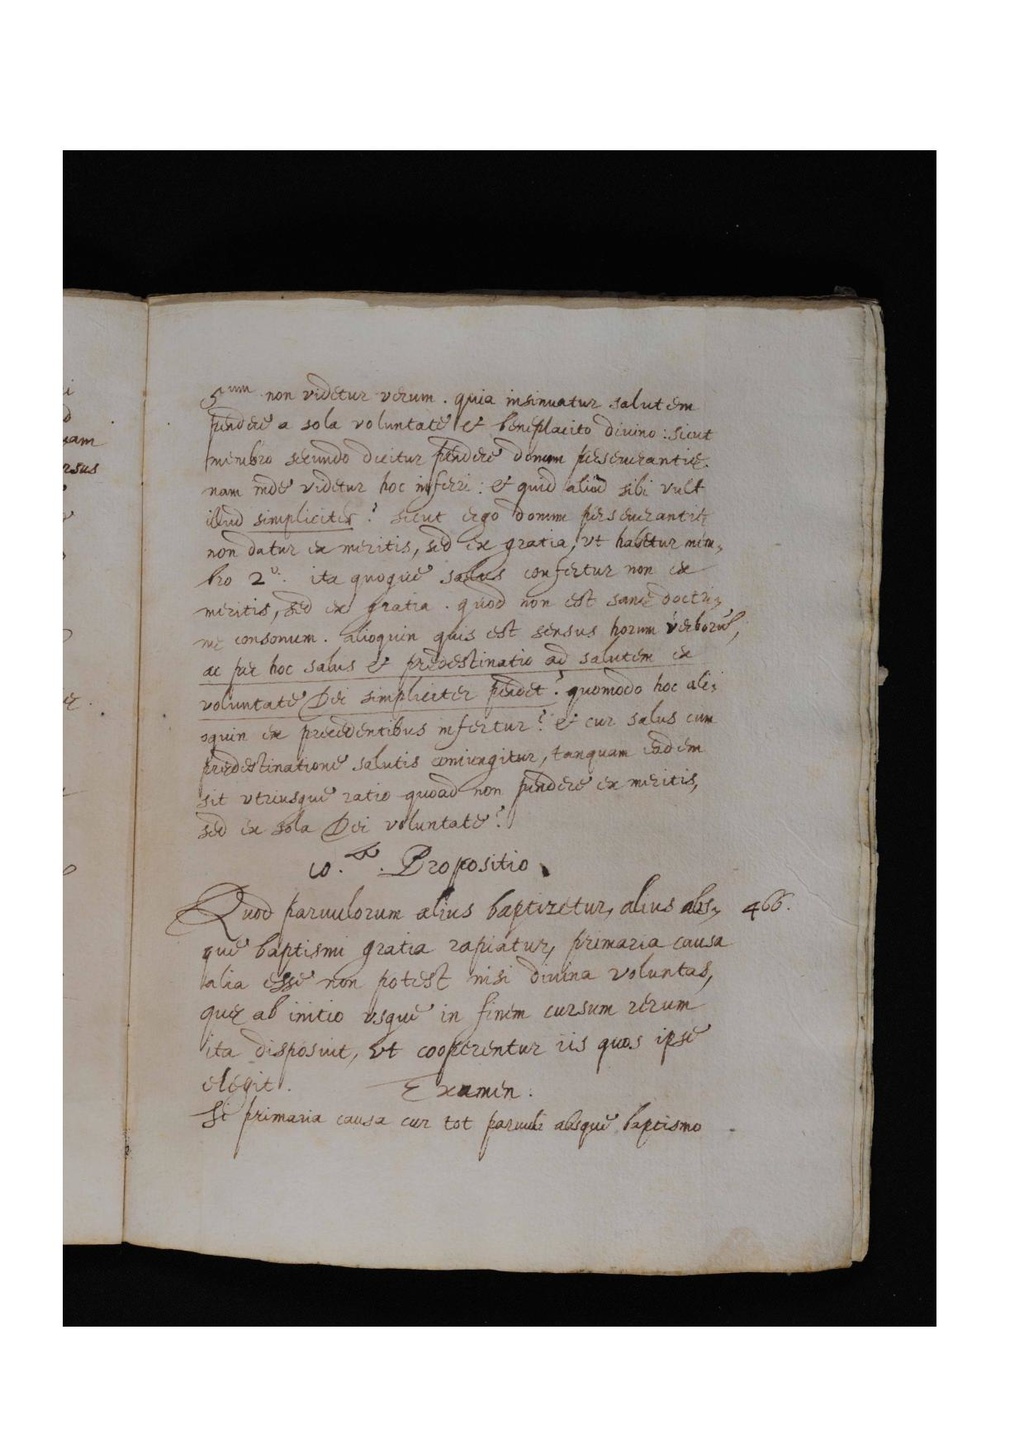 5um non videtur verum. quia insinuatur salutem
pendere a sola voluntate et beneplacito divino: sicut
membro secundo dicitur pendere donum perseverantię.
nam inde videtur hoc inferri: et quid aliud sibi vult
illud simpliciter? sicut ergo donum perseverantię
non datur ex meritis, sed ex gratia, vt habetur mem-
bro 2o. ita quoque salus confertur non ex
meritis, sed ex gratia. quod non est sanę doctri-
nę consonum. alioquin quis est sensus horum verborum,
ac per hoc salus et prędestinatio ad salutem ex
voluntate Dei simpliciter pendet? quomodo hoc ali-
oquin ex pręcedentibus infertur? et cur salus cum
prędestinatione salutis coniungitur, tanquam eadem
sit vtriusque ratio quoad non pendere ex meritis,
sed ex sola Dei voluntate?
Propositio
Quod parvulorum alius baptizetur, alius abs- 466.
que baptismi gratia rapiatur, primaria causa
alia esse non potest nisi divina voluntas,
quę ab initio vsque in finem cursum rerum
ita disposuit, vt cooperentur iis quos ipse
elegit. Examen.
Si primaria causa cur tot parvuli absque baptismo